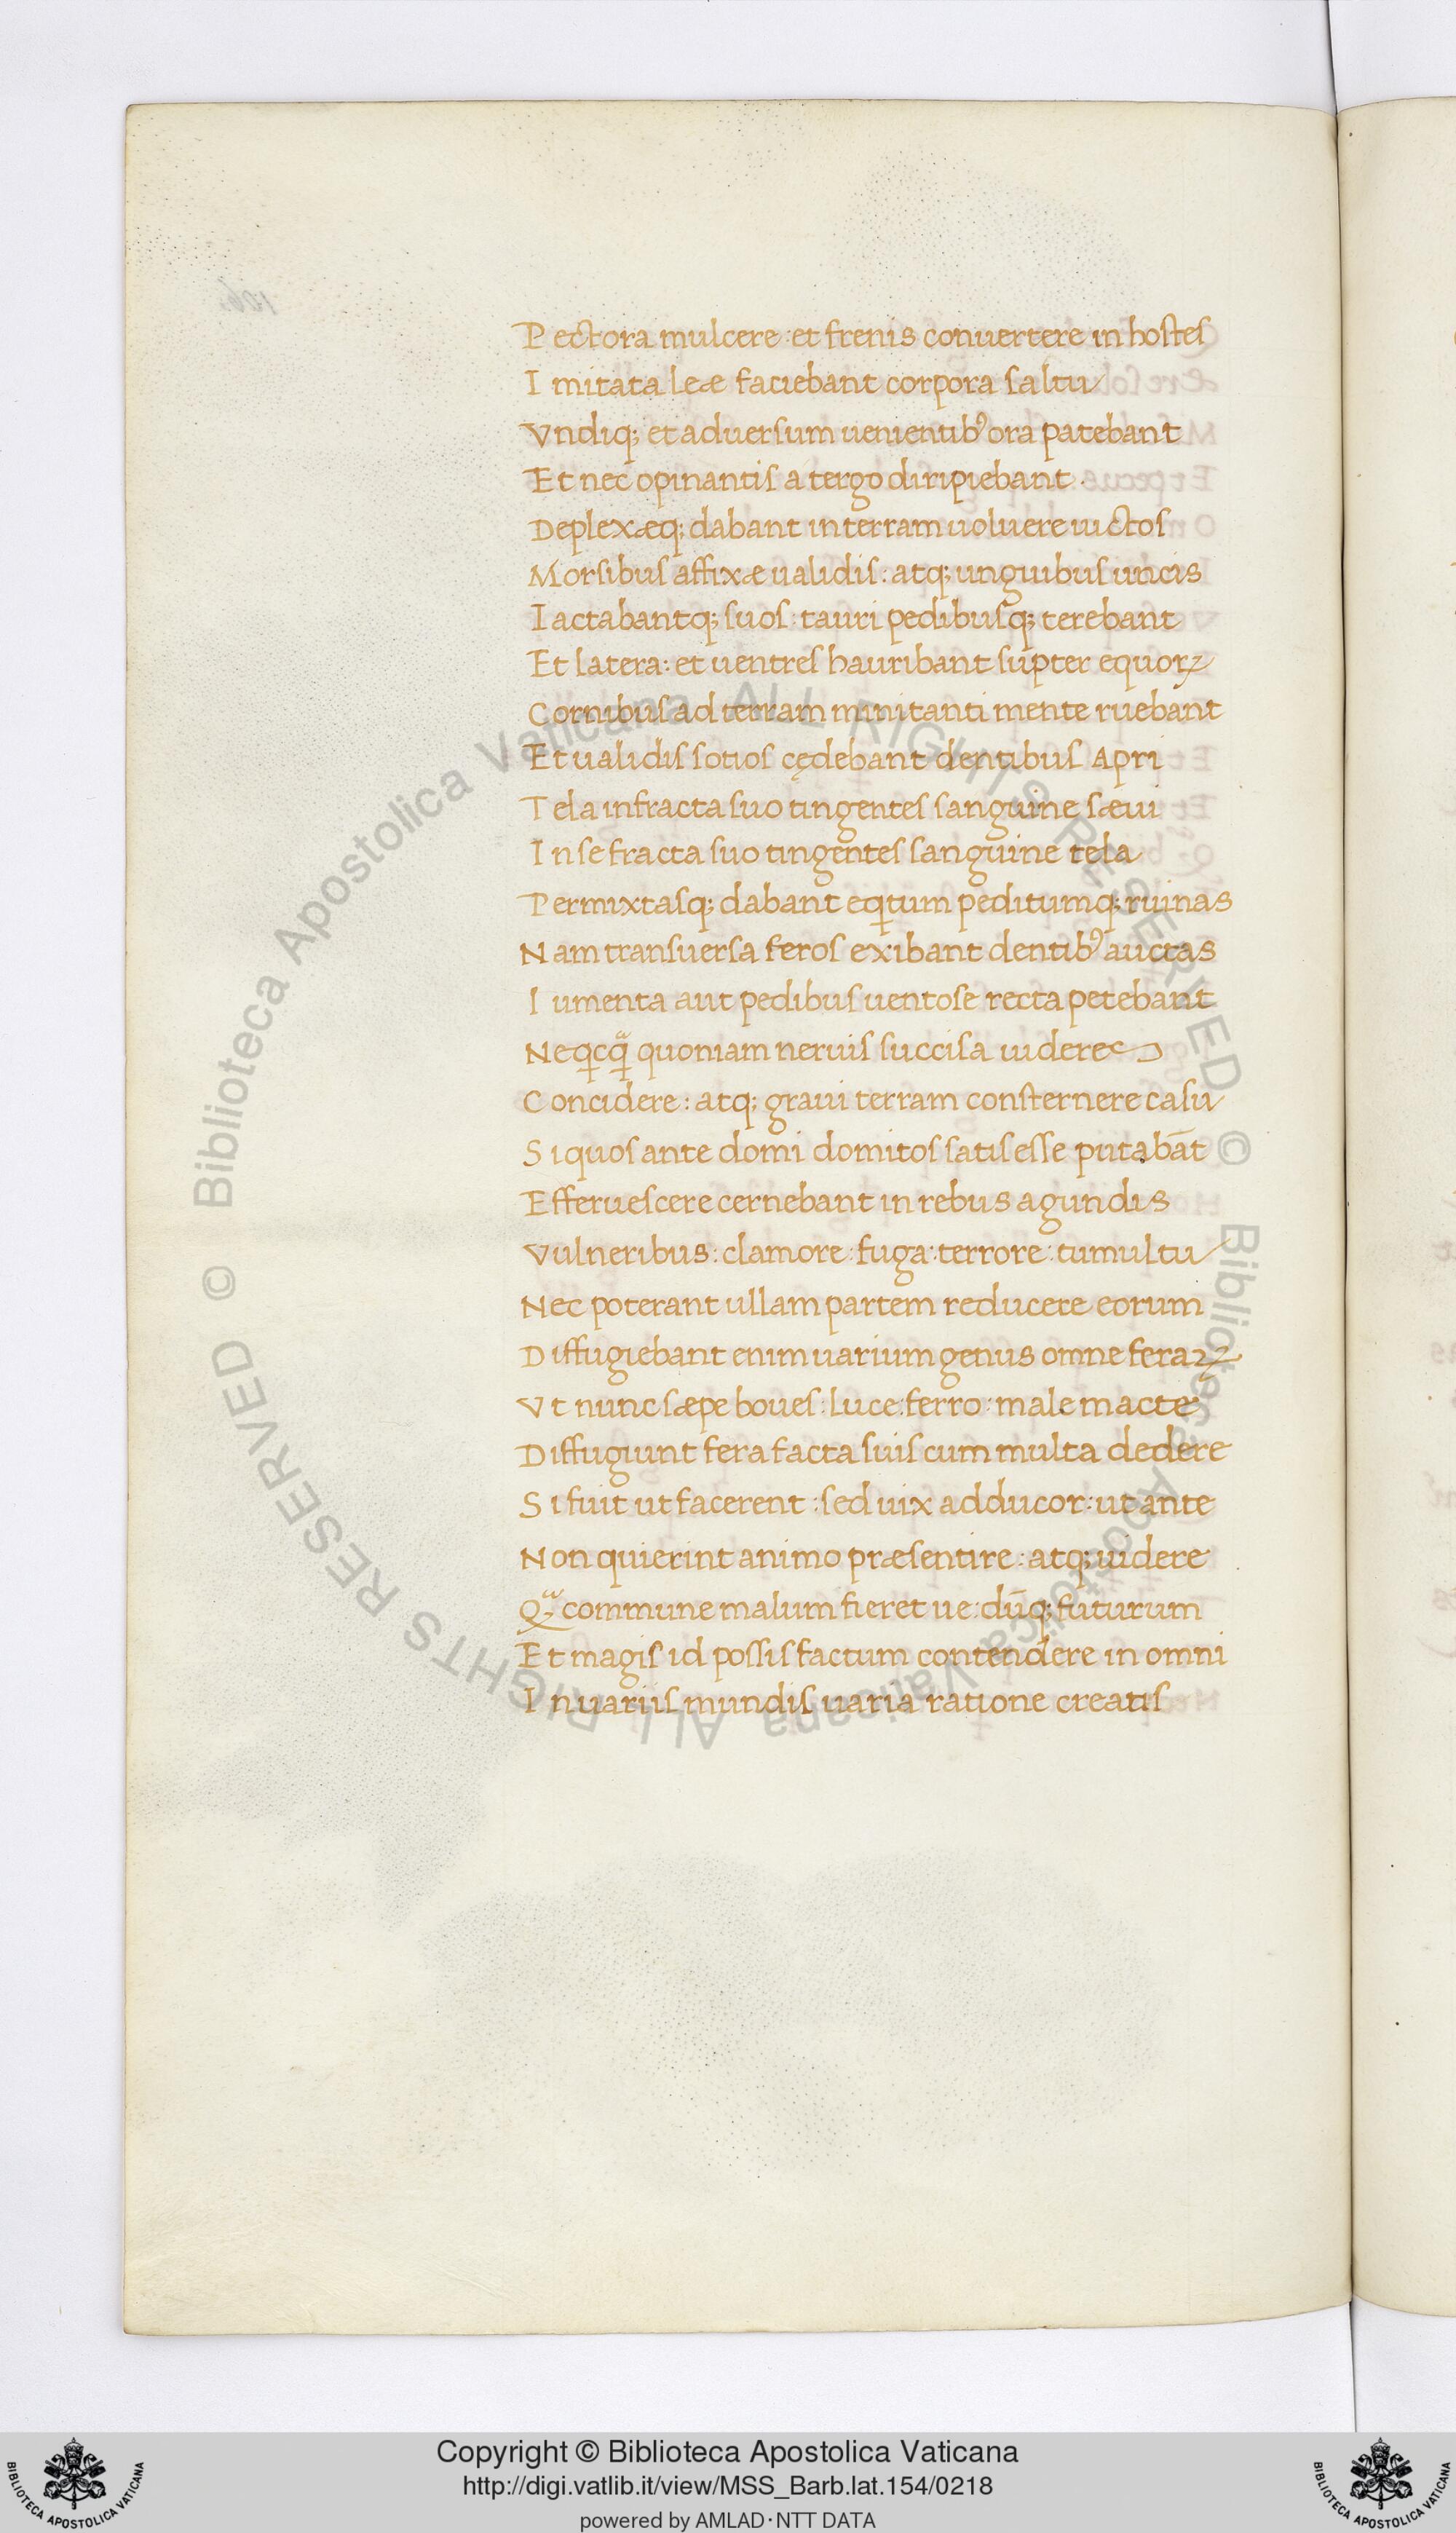 Pectora mulcere : et frenis conuertere in hostes
Imitata leæ faciebant corpora saltu
Vndiq; et aduersum uenientibꝰ ora patebant
Et nec opinantis a tergo diripiebant
Deplexæq; dabant in terram uoluere uictos
Morsibus affixæ ualidis : atq; unguibus uncis
Iactabantq; suos : tauri pedibusq; terebant
Et latera : et uentres hauribant supter equoꝝ
Cornibus ad terram minitanti mente ruebant
Et ualidis sotios cędebant dentibus Apri
Tela infracta suo tingentes sanguine sæui
In se fracta suo tingentes sanguine tela
Permixtasq; dabant eqͥtum peditumq; ruinas
Nam transuersa feros exibant dentibꝰ auctas
Iumenta aut pedibus uentose recta petebant
Neqͥcqͣ̄ quoniam neruis succisa uideres
Concidere : atq; graui terram consternere casu
Si quos ante domi domitos satis esse putabāt
Efferuescere cernebant in rebus agundis
Vulneribus : clamore : fuga : terrore : tumultu
Nec poterant ullam partem reducere eorum
Diffugiebant enim uarium genus omne feraꝝ
Vt nunc sæpe boues : luce : ferro : male macte
Diffugiunt fera facta suis cum multa dedere
Si fuit ut facerent : sed uix adducor : ut ante
Non quierint animo præsentire : atq; uidere
Qͣ commune malum fieret ue : dūq; futurum
Et magis id possis factum contendere in omni
In uariis mundis uaria ratione creatis
Biblioteca Apostolica Vaticana ALL RIGHTS RESERVED ©
Biblioteca Apostolica Vaticana ALL RIGHTS RESERVED ©
Copyright © Biblioteca Apostolica Vaticana
http://digi.vatlib.it/view/MSS_Barb.lat.154/0218
powered by AMLAD·NTT DATA
BIBLIOTECA APOSTOLICA VATICANA
BIBLIOTECA APOSTOLICA VATICANA